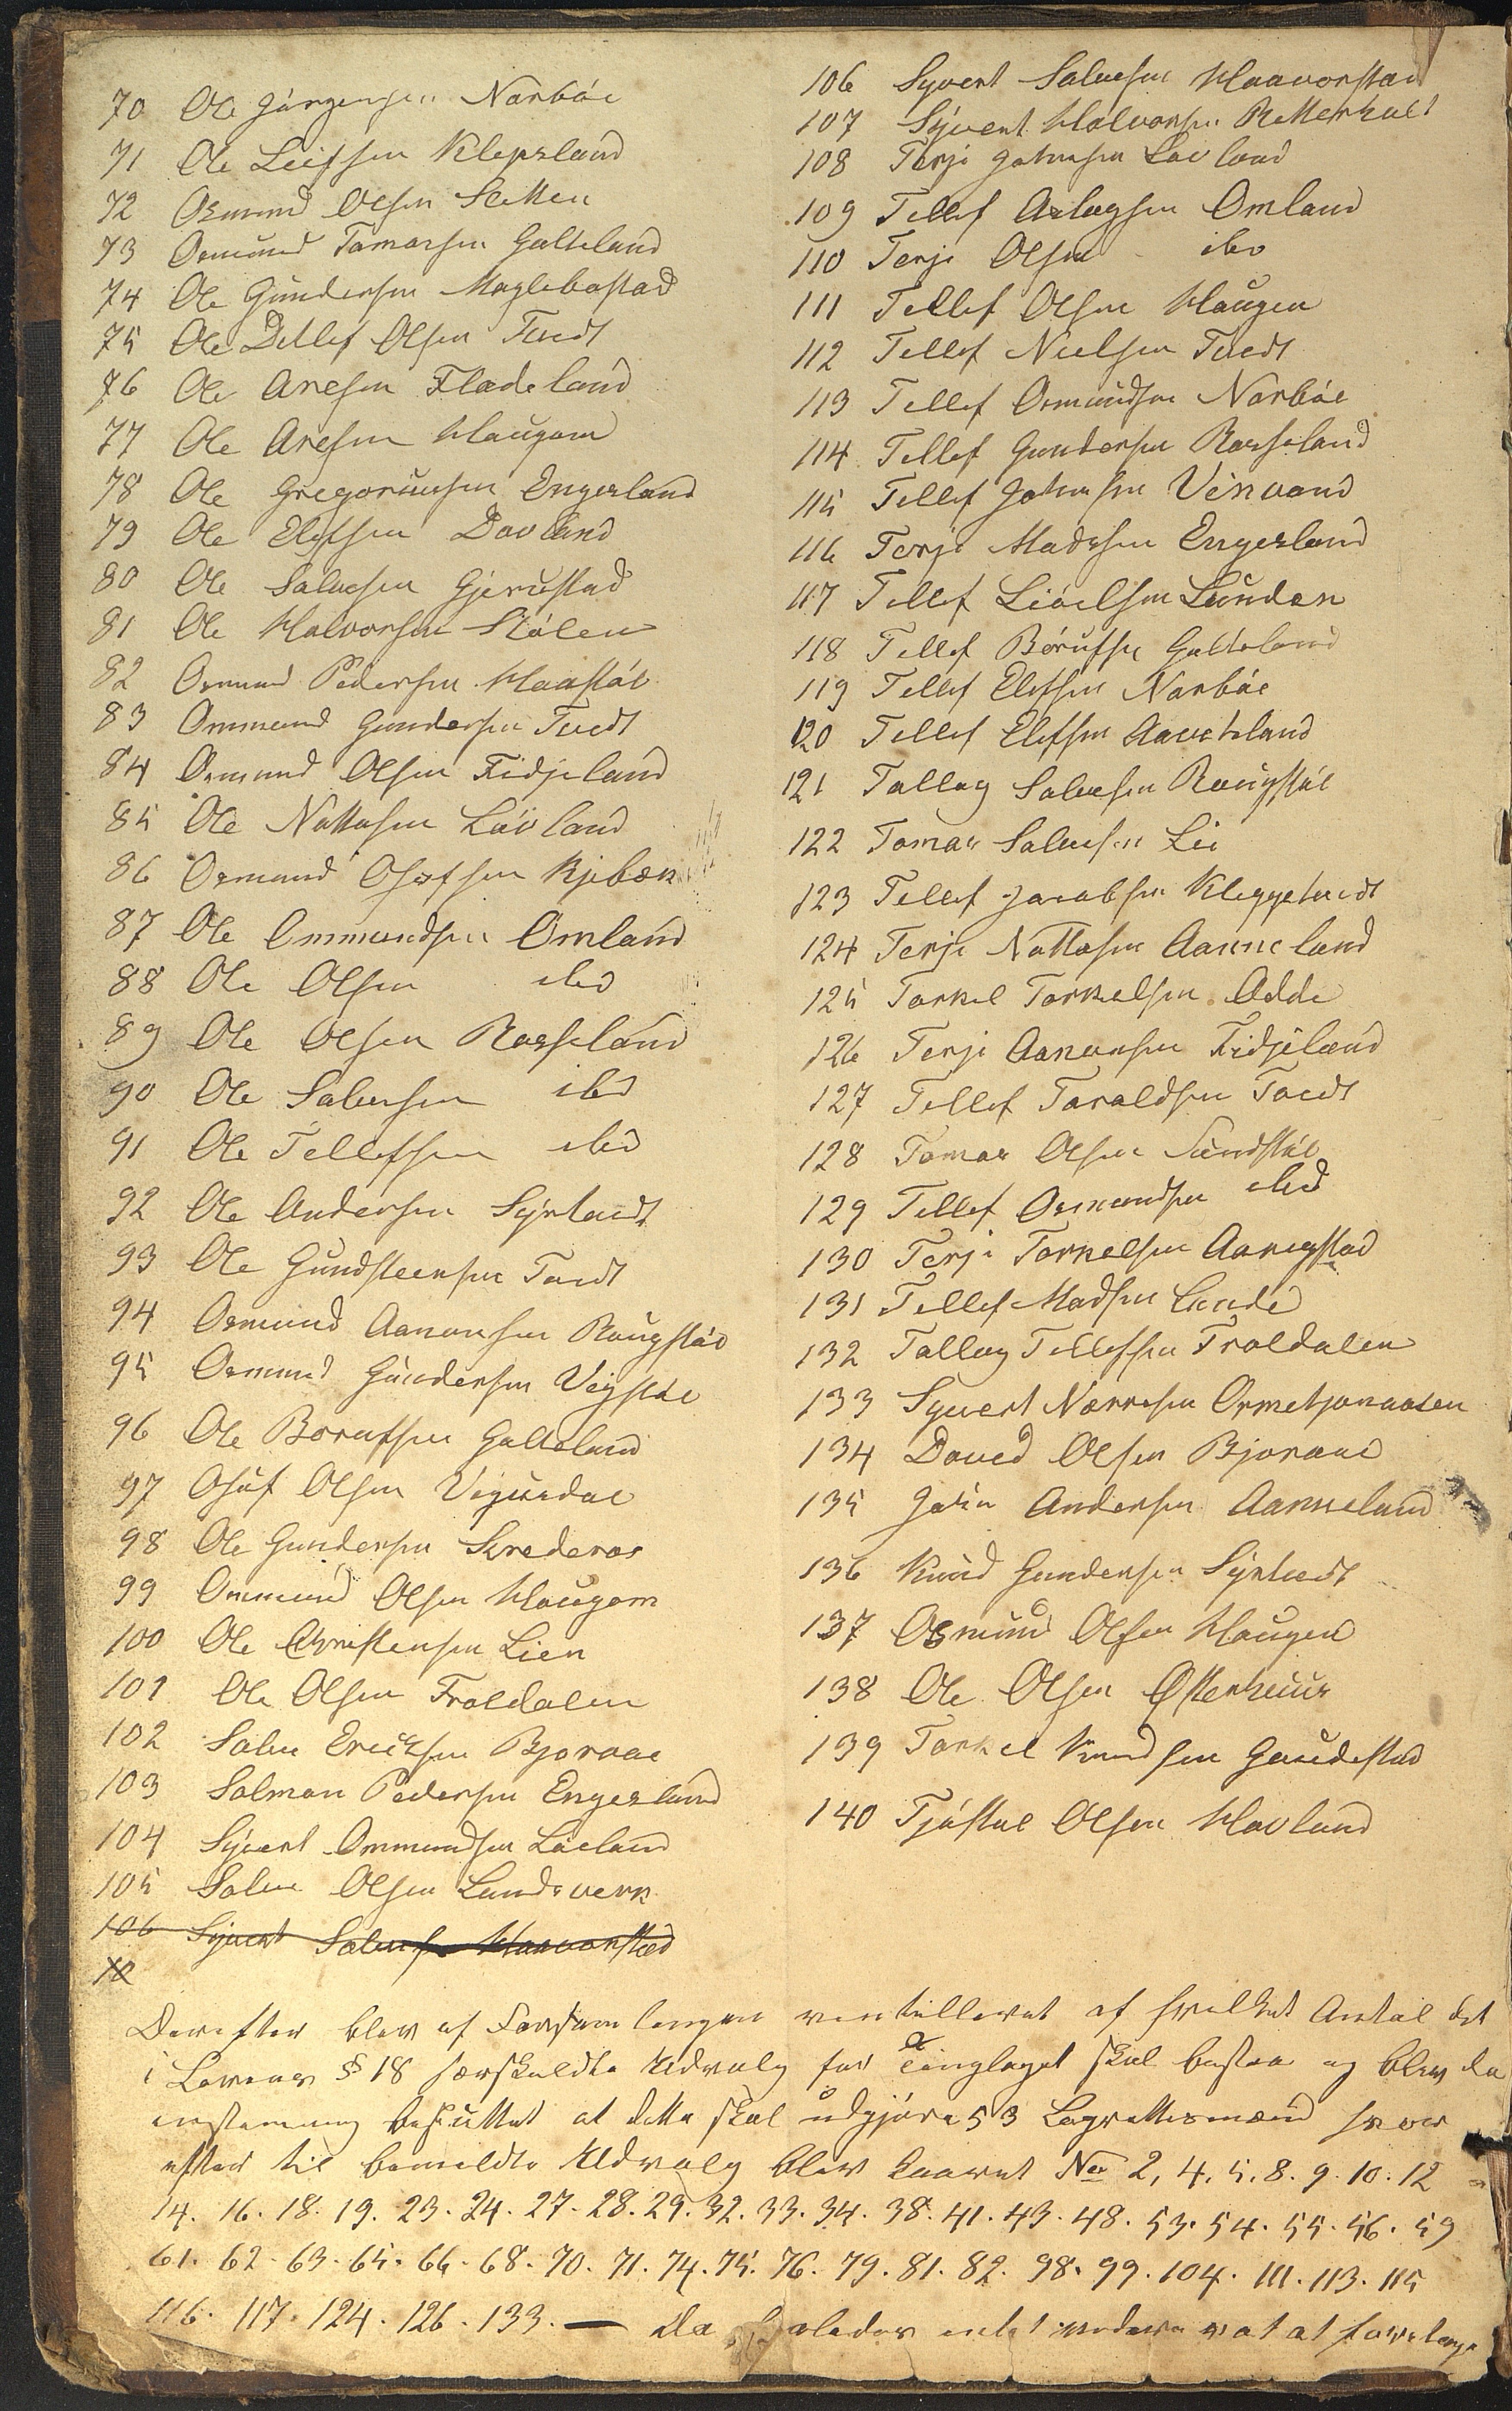 70 Ole Jörgensen Narböe
71 Ole Leifsen Klepsland
72 Osmund Olsen Sletten
73 Osmund Tomassen Galteland
74 Ole Gundersen Maglebostad
75 Ole Detlef Olsen Tvedt
76 Ole Aresen Fladeland
77 Ole Aresen Haugom
78 Ole Gregoriussen Engesland
79 Ole Elefsen Dovland
80 Ole Salvesen Gjerustad
81 Ole Halvorsen Stölen
82 Osmund Pedersen Haastöl
83 Ommund Gundersen Tvedt
84 Osmund Olsen Fidjeland
85 Ole Nottosen Lövland
86 Osmund Osufsen Kjebæk
87 Ole Ommundsen Omland
88 Ole Olsen ibid
89 Ole Olsen Rosseland
90 Ole Salvesen ibid
91 Ole Tellefsen ibid
92 Ole Andersen Syrtvedt
93 Ole Gundsteensen Tvedt
94 Osmund Aanonsen Raugstöl
95 Osmund Gundersen Vegstöl
96 Ole Borufsen Galteland
97 Osuf Olsen Vegusdal
98 Ole Gundersen Skrederos
99 Ommund Olsen Haugom
100 Ole Christensen Lien
101 Ole Olsen Troldalen
102 Salve Ericksen Bjoraae
103 Salmon Pedersen Engesland
104 Syvert Ommundsen Löeland
105 Salve Olsen Landsverk
106 Syvert Salvesen Haavorstad
10
106 Syvert Salvesen Haavorstad
107 Syvert Halvorsen Retterholt
108 Terje Johnsen Lövland
109 Tellef Aslagsen Omland
110 Terje Olsen ibid
111 Tellef Olsen Haugen
112 Tellef Nielsen Tvedt
113 Tellef Osmundsen Narböe
114 Tellef Gundersen Rosseland
115 Tellef Johnsen Vehvand
116 Terje Madssen Engesland
117 Tellef Liöelsen Lunden
118 Tellef Börufsen Galteland
119 Tellef Elefsen Narböe
120 Tellef Elefsen Hauchland
121 Tallag Salvesen Raugstöl
122 Tomas Salvesen Lie
123 Tellef Jacobsen Kleggetvedt
124 Terje Nottosen Aanneland
125 Torkel Torkelsen Odde
126 Terje Aanonsen Fidjeland
127 Tellef Taraldsen Tvedt
128 Tomas Olsen Sundstöl
129 Tellef Osmundsen ibid
130 Terje Torkelsen Aanegstad
131 Tellef Madsen Lande
132 Tallag Tellefsen Troldalen
133 Syvert Norresen Ormetjonaasen
134 David Olsen Bjoraae
135 John Andersen Aanneland
136 Knud Gundersen Syrtvedt
137 Osmund Olsen Haugen
138 Ole Olsen Østerhuus
139 Torkel Knudsen Gaudestad
140 Tjöstul Olsen Hovland
Derefter blev af Forsamlingen ventilleret af hvilket Antal det
i Lovens § 18 forskuldte Udvalg for Tinglaget skal bestaa og blev da
enstemmig besluttet at dette skal udgjöre 53 Lagrettesmænd hvor
efter til bemeldte Udvalg blev kaaret No 2, 4. 5. 8. 9. 10. 12
14. 16. 18. 19. 23. 24. 27. 28. 29. 32. 33. 34. 38. 41. 43. 48. 53. 54. 55. 56. 59
61. 62. 63. 65. 66. 68. 70. 71. 74. 75. 76. 79. 81. 82. 98. 99. 104. 111. 113. 115
116. 117. 124. 126. 133. — Da saaledes intet videre var at foretage